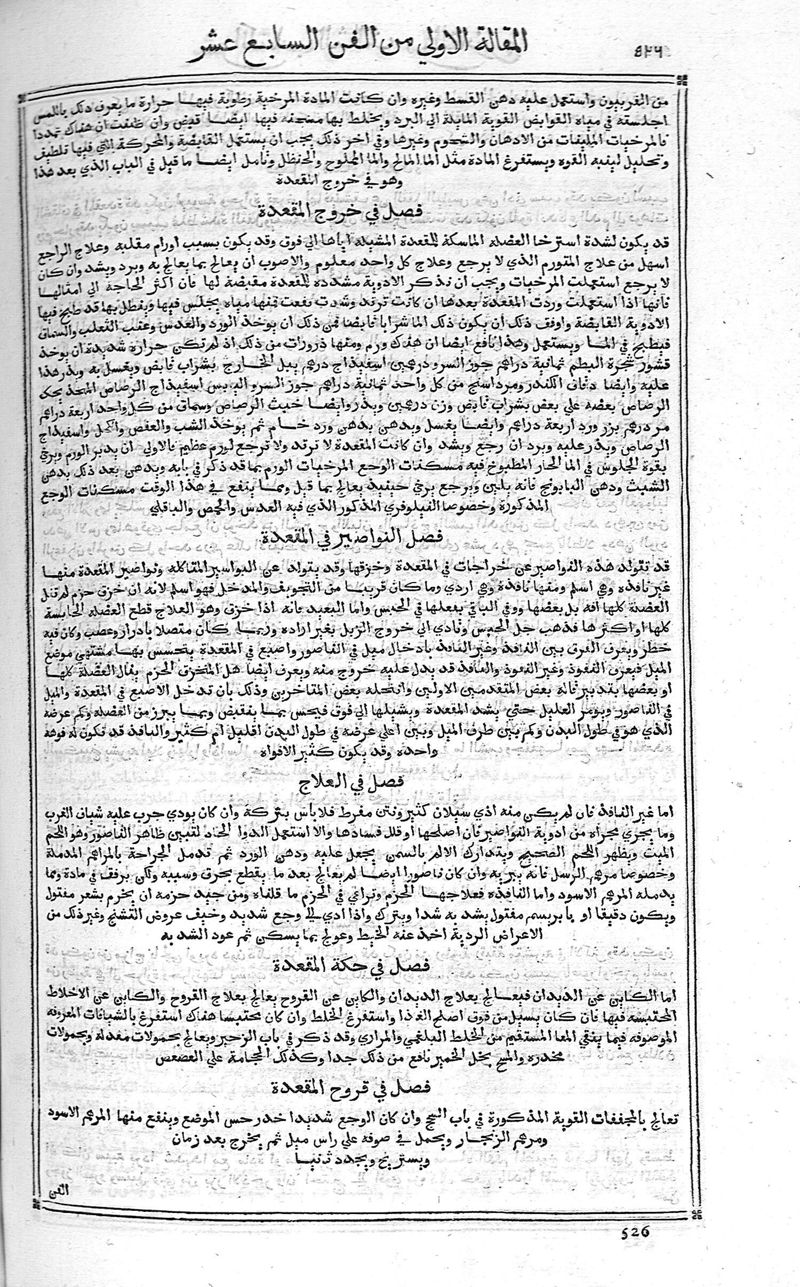 ٥٢٦
المقالة الاولي من الفن السابع عشر
من الفربيون واستعمل عليه دهن القسط وغيره وان كانت المادة المرخية رطوبة فيها حرارة ما يعرف ذلك باللمس
اجلسته في مياه القوابض القوية المايلة الي البرد ويخلط بها مسخنه فيها ايضا قبض وان ظننت ان هناك تمددا
فالمرخيات الملينات من الادهان والشحوم وغيرها وفي اخر ذلك يجب ان يستعمل القابضة والمحركة التي فيها تلطيف
وتحليل لينبه القوه ويستفرغ المادة مثل الما المالح والما المملوح والحنظل وتامل ايضا ما قيل في الباب الذي بعد هذا
وهو في خروج المقعدة
فصل في خروج المقعدة
قد يكون لشدة استرخا العضله الماسكة للمقعدة المشيله اياها الي فوق وقد يكون بسبب اورام مقلبه وعلاج الراجع
اسهل من علاج المتورم الذي لا يرجع وعلاج كل واحد معلوم والاصوب ان يعالج بما يعالج به ويرد ويشد وان كان
لا يرجع استعملت المرخيات ويجب ان نذكر الادوية مشدده للمقعدة مقبضة لها فان اكثر الحاجة الي امثالها
فانها اذا استعملت وردت المقعدة بعدها ان كانت ترتد وشدت نفعت فمنها مياه يجلس فيها ويغطل بها قد طبخ فيها
الادوية القابضة واوفق ذلك ان يكون ذلك الما شرابا قابضا فمن ذلك ان يوخذ الورد والعدس وعنب الثعلب والسماق
فيطبخ في الما ويستعمل وهذا نافع ايضا ان هناك ورم ومنها ذرورات من ذلك اذ لم تكن حرارة شديدة ان يوخذ
قشور شجرة البطم ثمانية دراهم جوز السرو درهمين اسفيذاج درهم يبل الخارج بشراب قابض ويغسل به ويذر هذا
عليه وايضا دقاق الكندر ومرداسنج من كل واحد ثمانية دراهم جوز السرو اليابس اسفيذاج الرصاص المتخذ بحك
الرصاص بعضه علي بعض بشراب قابض وزن درهمين ويذر وايضا خبث الرصاص وسماق من كل واحد اربعة دراهم
مر درهم بزر ورد اربعة دراهم وايضا يغسل ويدهن بدهن ورد خام ثم يوخذ الشب والعفص والكحل واسفيذاج
الرصاص ويذر عليه ويرد ان رجع ويشد وان كانت المقعدة لا ترتد ولا ترجع لورم عظيم فالاولي ان يدبر الورم ويرخي
بقوة الجلوس في الما الحار المطبوخ فيه مسكنات الوجع المرخيات الورم بما قد ذكر في بابه ويدهن بعد ذلك بدهن
الشبث ودهن البابونج فانه يلين ويرجع يرخي حينيذ يعالج بما قيل ومما ينفع في هذا الوقت مسكنات الوجع
المذكورة وخصوصا النيلوفري المذكور الذي فيه العدس والحمص والباقلي
فصل النواصير في المقعدة
قد تتولد هذه النواصير عن خراجات في المقعدة وخرقها وقد يتولد عن البواسير المتاكله ونواصير المقعدة منها
غير نافذه وهي اسلم ومنها نافذة وهي اردي وما كان قريبا من التجويف والمدخل فهو اسلم لانه ان خرق خرم لم تنل
العضلة كلها افه بل بعضها ووفي الباقي بفعلها في الحبس واما البعيد فانه اذا خرق وهو العلاج قطع العضله الحابسة
كلها او اكثرها فذهب جل الحبس وتادي الي خروج الزبل بغير اراده وربما كان متصلا باوراد وعصب وكان فيه
خطر ويعرف الفرق بين النافذ وغير النافذ بادخال ميل في الناصور واصبع في المقعدة يتحسس بها منتهي موضع
الميل فيعرف النفوذ وغير النفوذ والنافذ قد يدل عليه خروج منه ويعرف ايضا هل المنخرق الخرم ينال العضلة كلها
او بعضها بتدبير قاله بعض المتقدمين الاولين وانتحله بعض المتاخرين وذلك بان تدخل الاصبع في المقعدة والميل
في الناصور ويومر العليل حتي يشد المقعدة ويشيلها الي فوق فيحس بما يتقبض وبما يبرز من العضله وكم عرضه
الذي هو في طول البدن وكم بين طرف الميل وبين اعلي عرضه في طول البدن اقليل ام كثير والنافذ قد تكون له فوهة
واحده وقد يكون كثير الافواه
فصل في العلاج
اما غير النافذ فان لم يكن منه اذي سيلان كثير ونتن مفرط فلا باس بتركه وان كان يوذي جرب عليه شياف الغرب
وما يجري مجراه من ادوية النواصير فان اصلحها او قلل فسادها والا استعمل الدوا الحاد لتبين ظاهر الناصور وهو اللحم
الميت ويظهر اللحم الصحيح ويتدارك الالم بالسمن يجعل عليه ودهن الورد ثم تدمل الجراحة بالمراهم المدملة
وخصوصا مرهم الرسل فانه يبريه وان كان ناصورا ايضا لم يعالج بعد ما يقطع بخرق وسببه وكي برفق في مادة ومما
يدمله المرهم الاسود واما النافذه فعلاجها الخزم وتراعي في الخزم ما قلناه ومن جيد خزمه ان يخزم بشعر مفتول
ويكون دقيقا او بابريسم مفتول يشد به شدا ويترك واذا ادي الي وجع شديد وخيف عروض التشنج وغير ذلك من
الاعراض الردية اخذ عنه الخيط وعولج بما يسكن ثم عود الشد به
فصل في حكة المقعدة
اما الكاين عن الديدان فيعالج بعلاج الديدان والكاين عن القروح يعالج بعلاج القروح والكاين عن الاخلاط
المحتبسه فيها فان كان يسيل من فوق اصلح الغذا واستفرغ الخلط وان كان محتبسا هناك استفرغ بالشيافات المعروفه
الموصوفه فيما ينقي المعا المستقيم من الخلط البلغمي والمراري وقد ذكر في باب الزحير ويعالج بحمولات معدله وبحمولات
مخدره والمسح بخل الخمير نافع من ذلك جدا وكذلك الحجامة علي العصعص
فصل في قروح المقعدة
تعالج بالمجففات القوية المذكورة في باب السحج وان كان الوجع شديدا خدر حس الموضع وينفع منها المرهم الاسود
ومرهم الزنجار ويحمل في صوفه علي راس ميل ثم يخرج بعد زمان
ويستريح ويجدد ثانيا
الفن
526